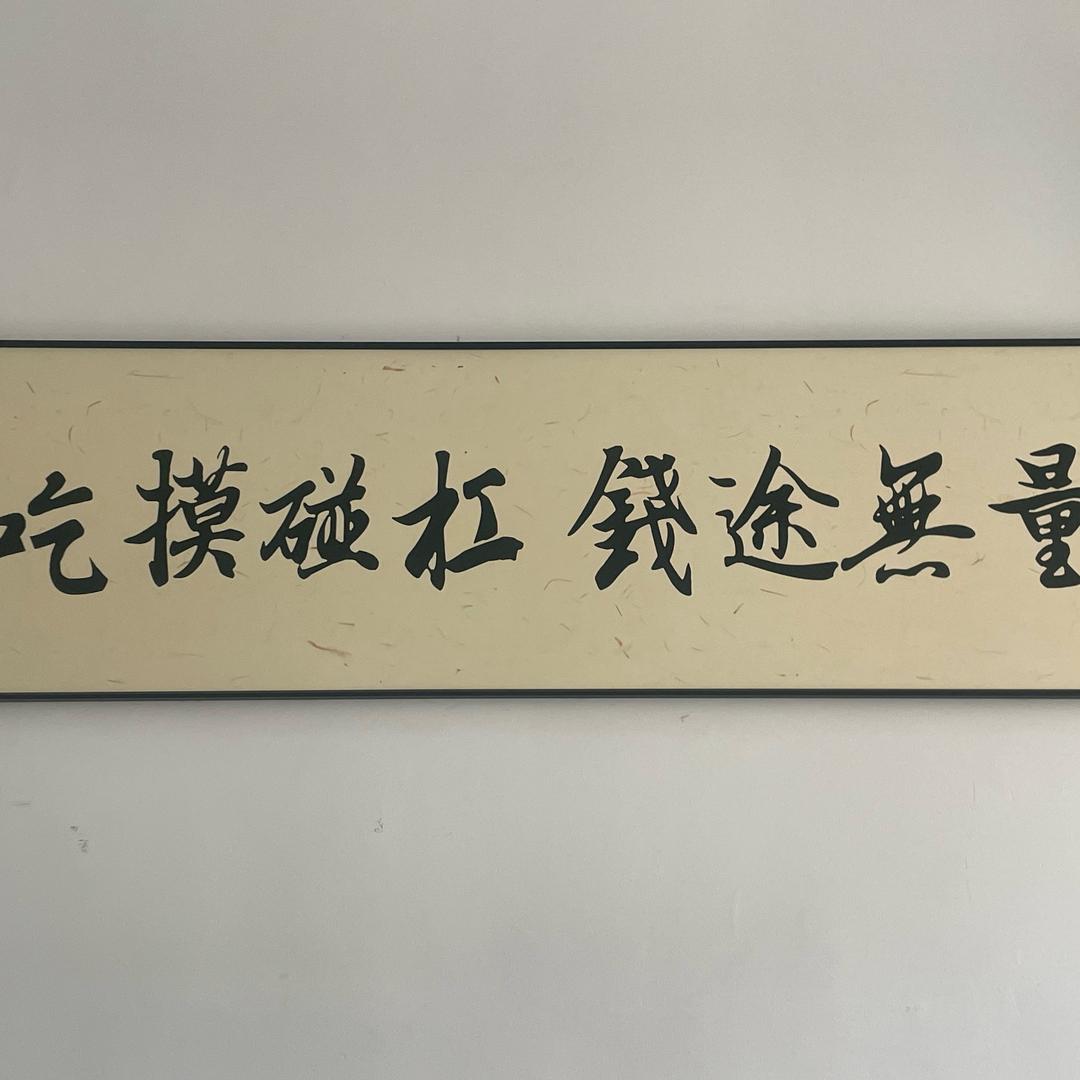 吃摸碰杠 錢途無量